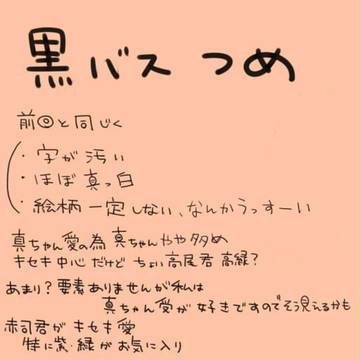 黒バス つめ
前回と同じく
・字が汚い
・ほぼ真っ白
・絵柄一定しない、なんかうっすーい
真ちゃん愛の為 真ちゃんやや多め
キセキ中心だけど ちょい高尾君 高緑?
あまり?要素ありませんが私は
真ちゃん受が好きですのでそう見えるかも
赤司君がキセキ愛
特に紫・緑がお気に入り